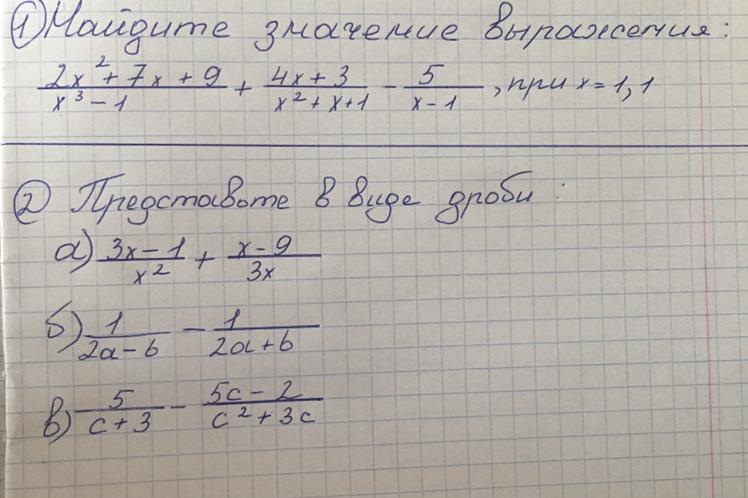 ① Найдите значение выражения:
(2x² + 7x + 9)/(x³ – 1) + (4x + 3)/(x² + x + 1) – 5/(x – 1), при x = 1,1
② Представьте в виде дроби:
а) (3x – 1)/x² + (x – 9)/3x
б) 1/(2a – b) – 1/(2a + b)
в) 5/(c + 3) – (5c – 2)/(c² + 3c)